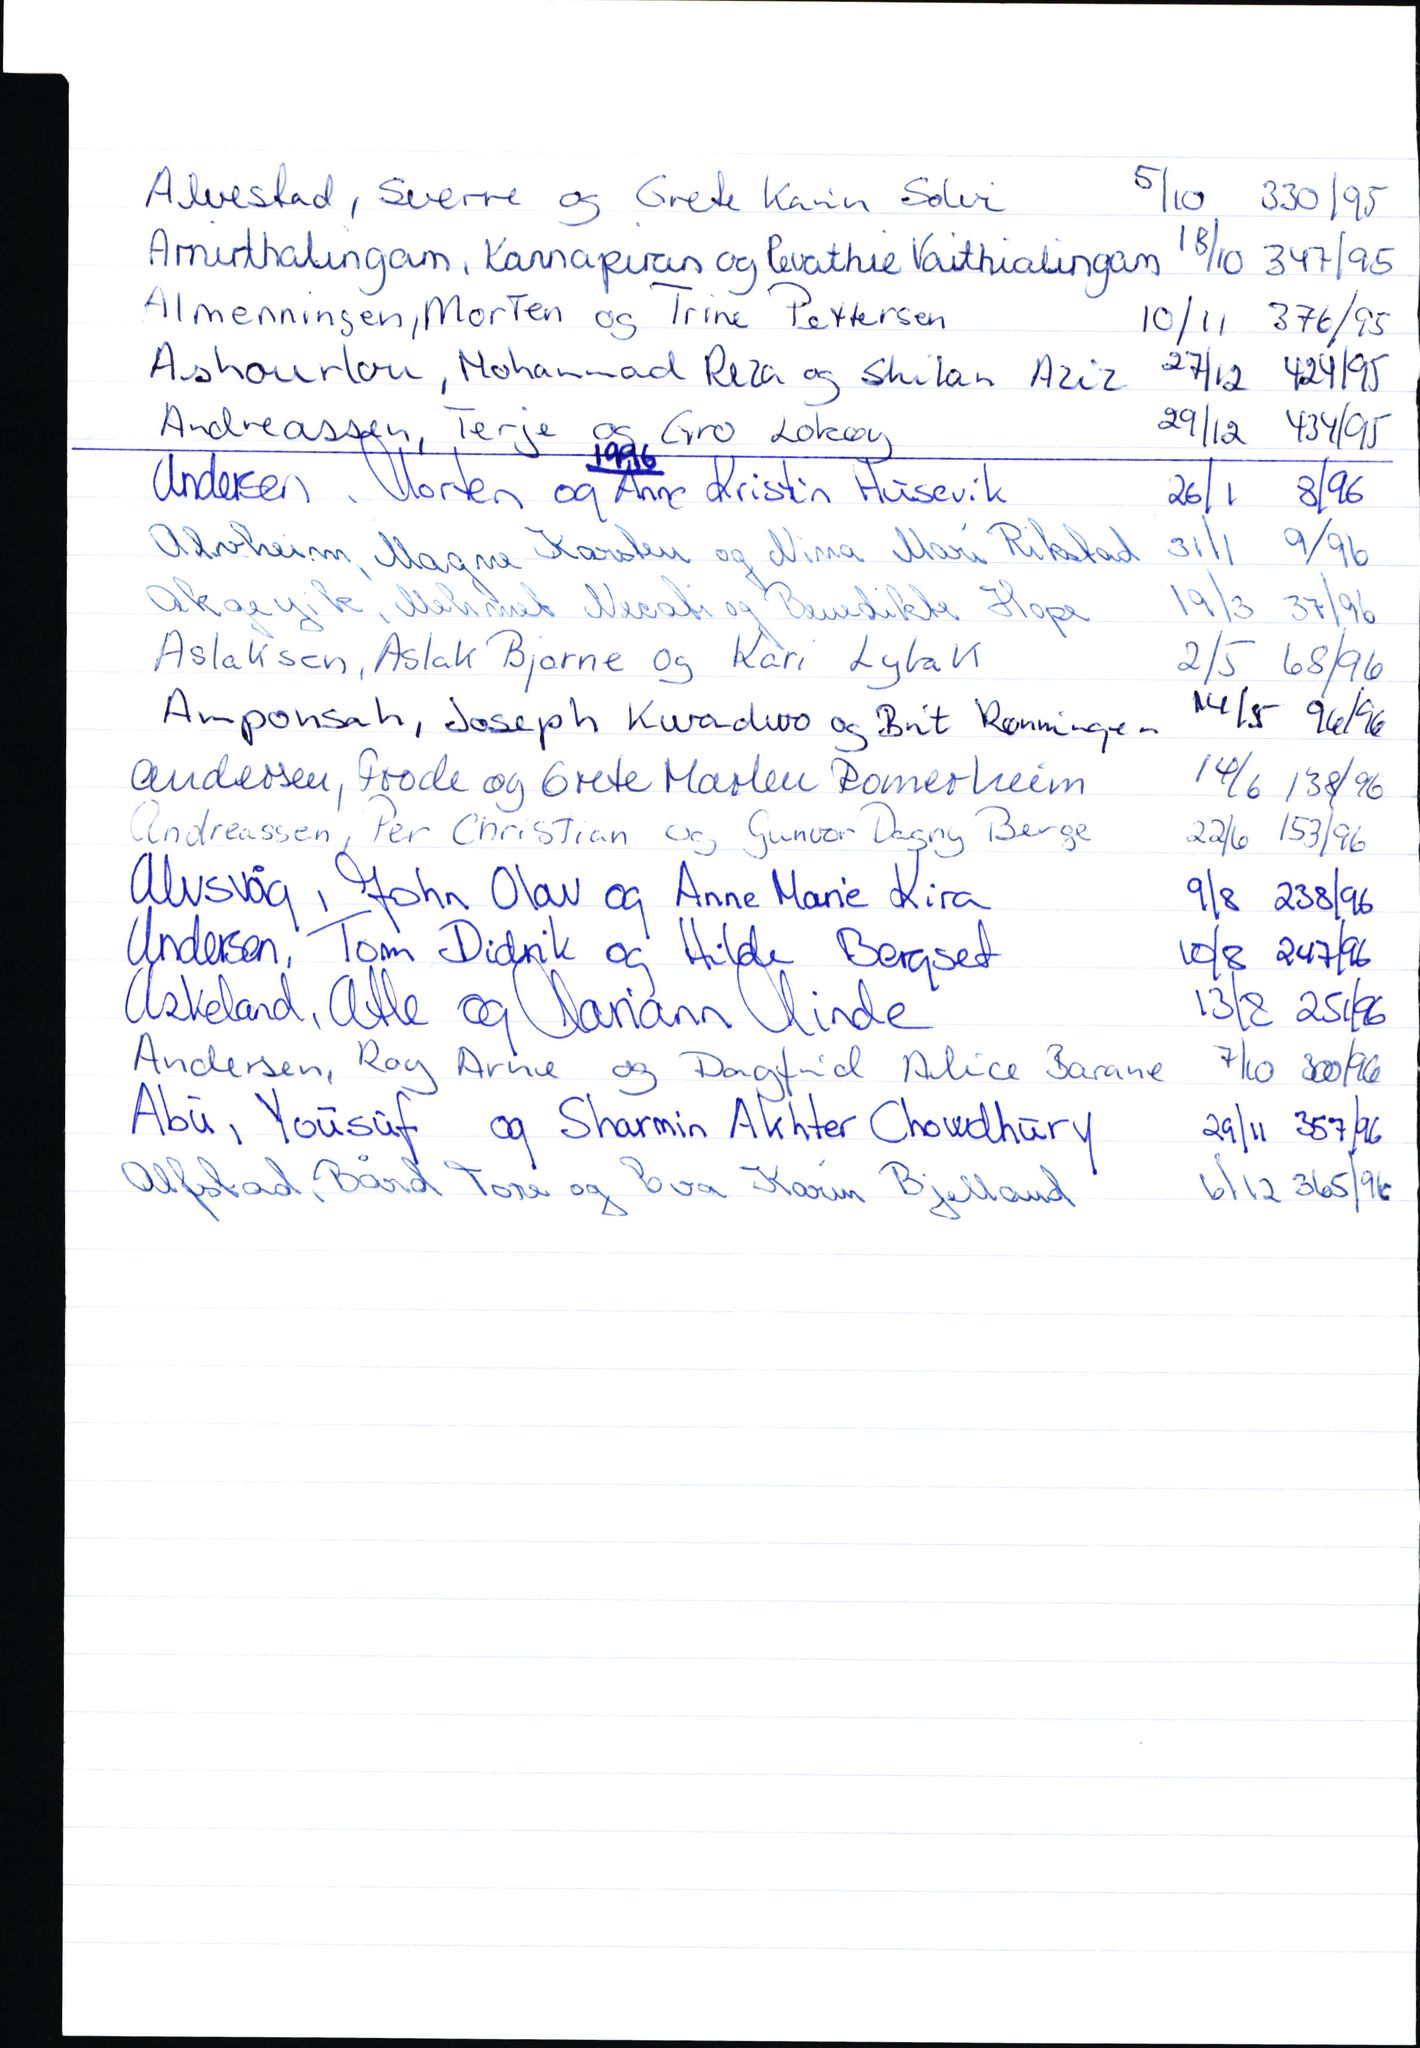 Alvestad, Sverre og Grete Karin Solvi 5/10 330/95
Amirthalingam, Kannapiran og Revathie Vaithialingam 18/10 347/95
Almenningen, Morten og Trine Pettersen 10/11 376/95
Ashourlou, Mohammad Reza og Shilan Aziz 27/12 424/95
Andreassen, Terje og Gro Lokøy 29/12 434/95
1996
Andersen, Morten og Anne Kristin Husevik 26/1 8/96
Alvheim, Magne Karsten og Nina Mari Rikstad 31/1 9/96
Akgeyik, Mehmet Necati og Benedikte Hope 19/3 37/96
Aslaksen, Aslak Bjarne og Kari Lybak 2/5 68/96
Amponsah, Joseph Kwadwo og Brit Rønningen 14/5 96/96
Anderssen, Frode og Grete Marlen Romerheim 14/6 138/96
Andreassen, Per Christian og Gunvor Dagny Berge 22/6 153/96
Alvsvåg, John Olav og Anne Marie Kira 9/8 238/96
Andersen, Tom Didrik og Hilde Bergset 10/8 247/96
Askeland, Atle og Mariann Minde 13/8 251/96
Andersen, Roy Arne og Dagfrid Alice Barane 7/10 300/96
Abu, Yousuf og Sharmin Akhter Chowdhury 29/11 357/96
Alfstad, Bård Tore og Eva Karin Bjelland 6/12 365/96